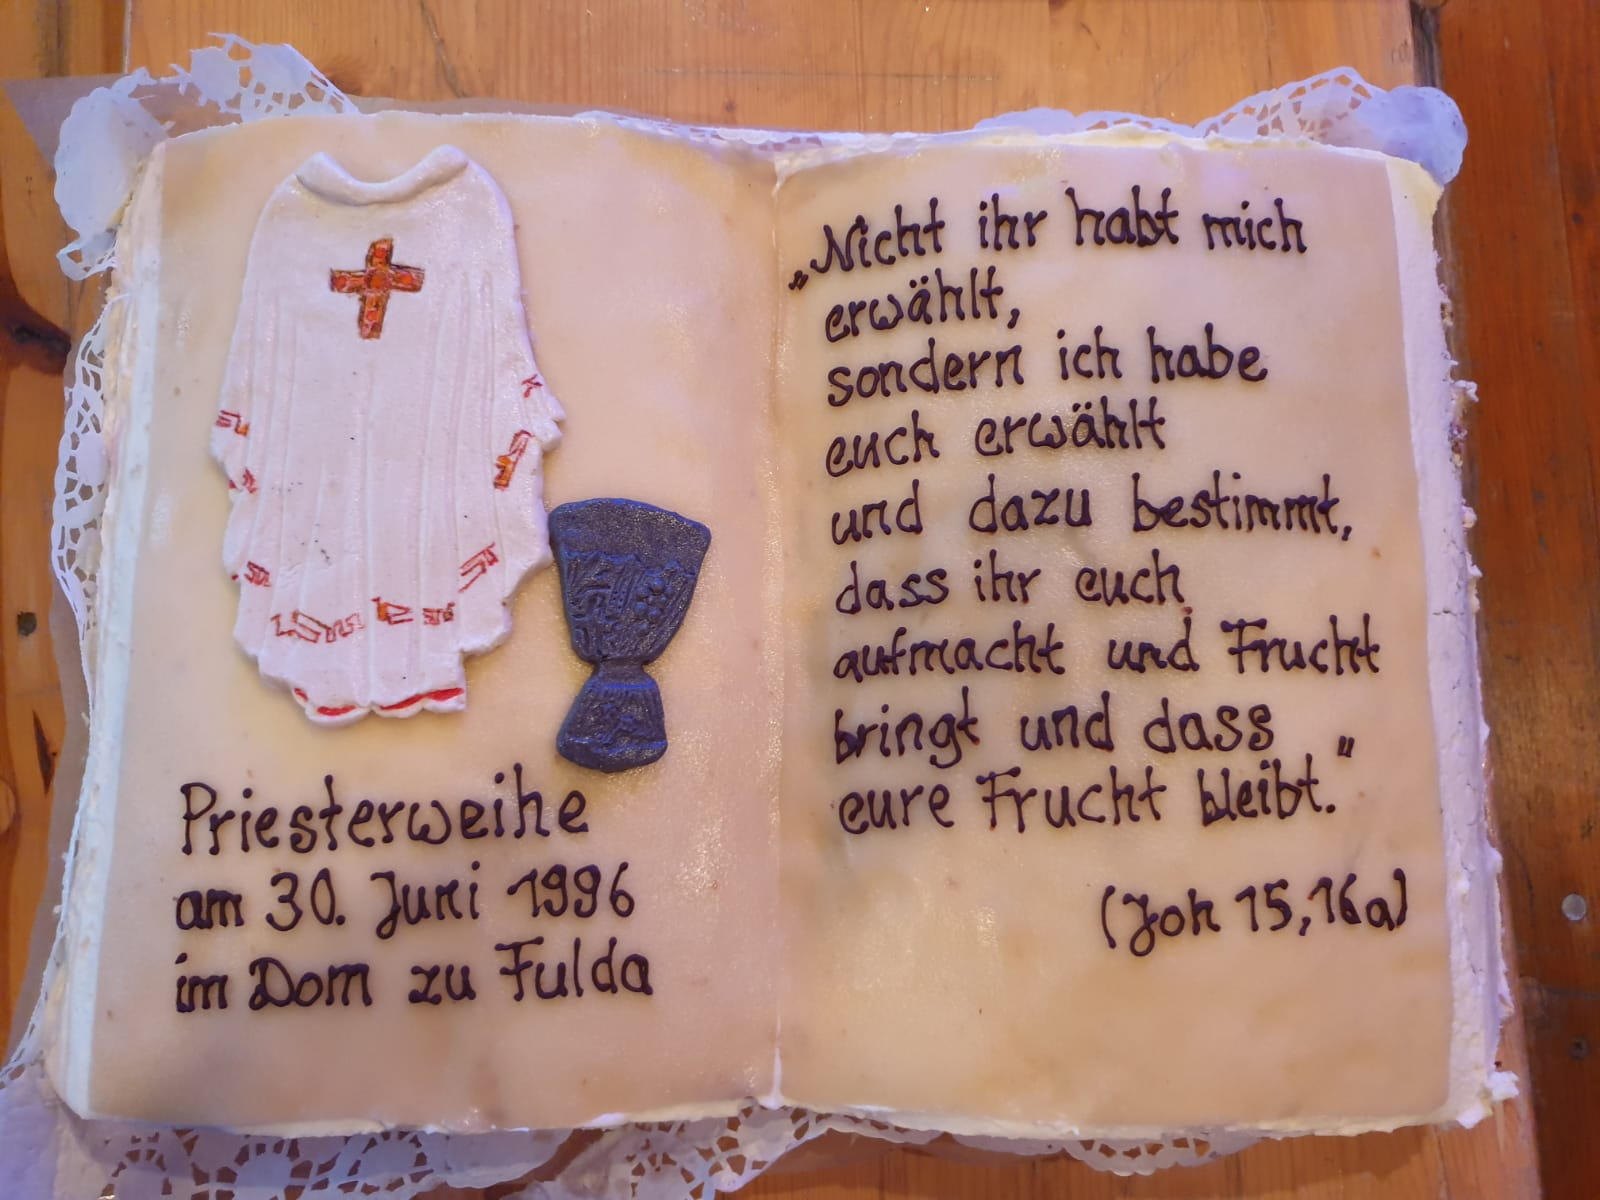 Priesterweihe
am 30. Juni 1996
im Dom zu Fulda
„Nicht ihr habt mich
erwählt,
sondern ich habe
euch erwählt
und dazu bestimmt,
dass ihr euch
aufmacht und Frucht
bringt und dass
eure Frucht bleibt."
(Joh 15,16a)